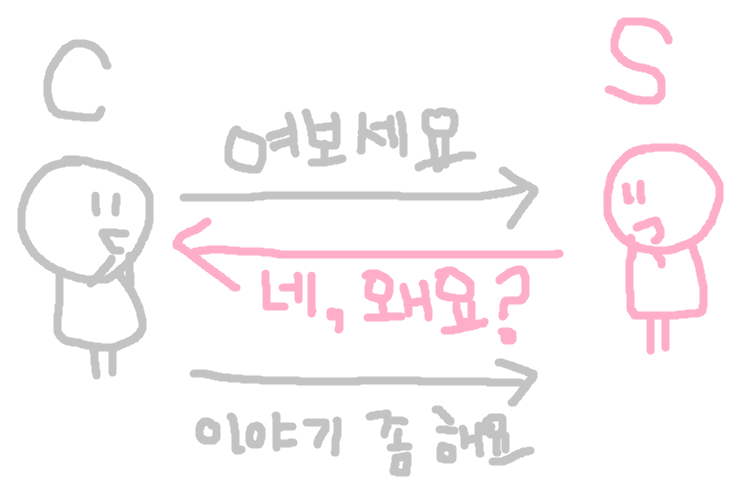 C
S
여보세요
네, 왜요?
이야기 좀 해요